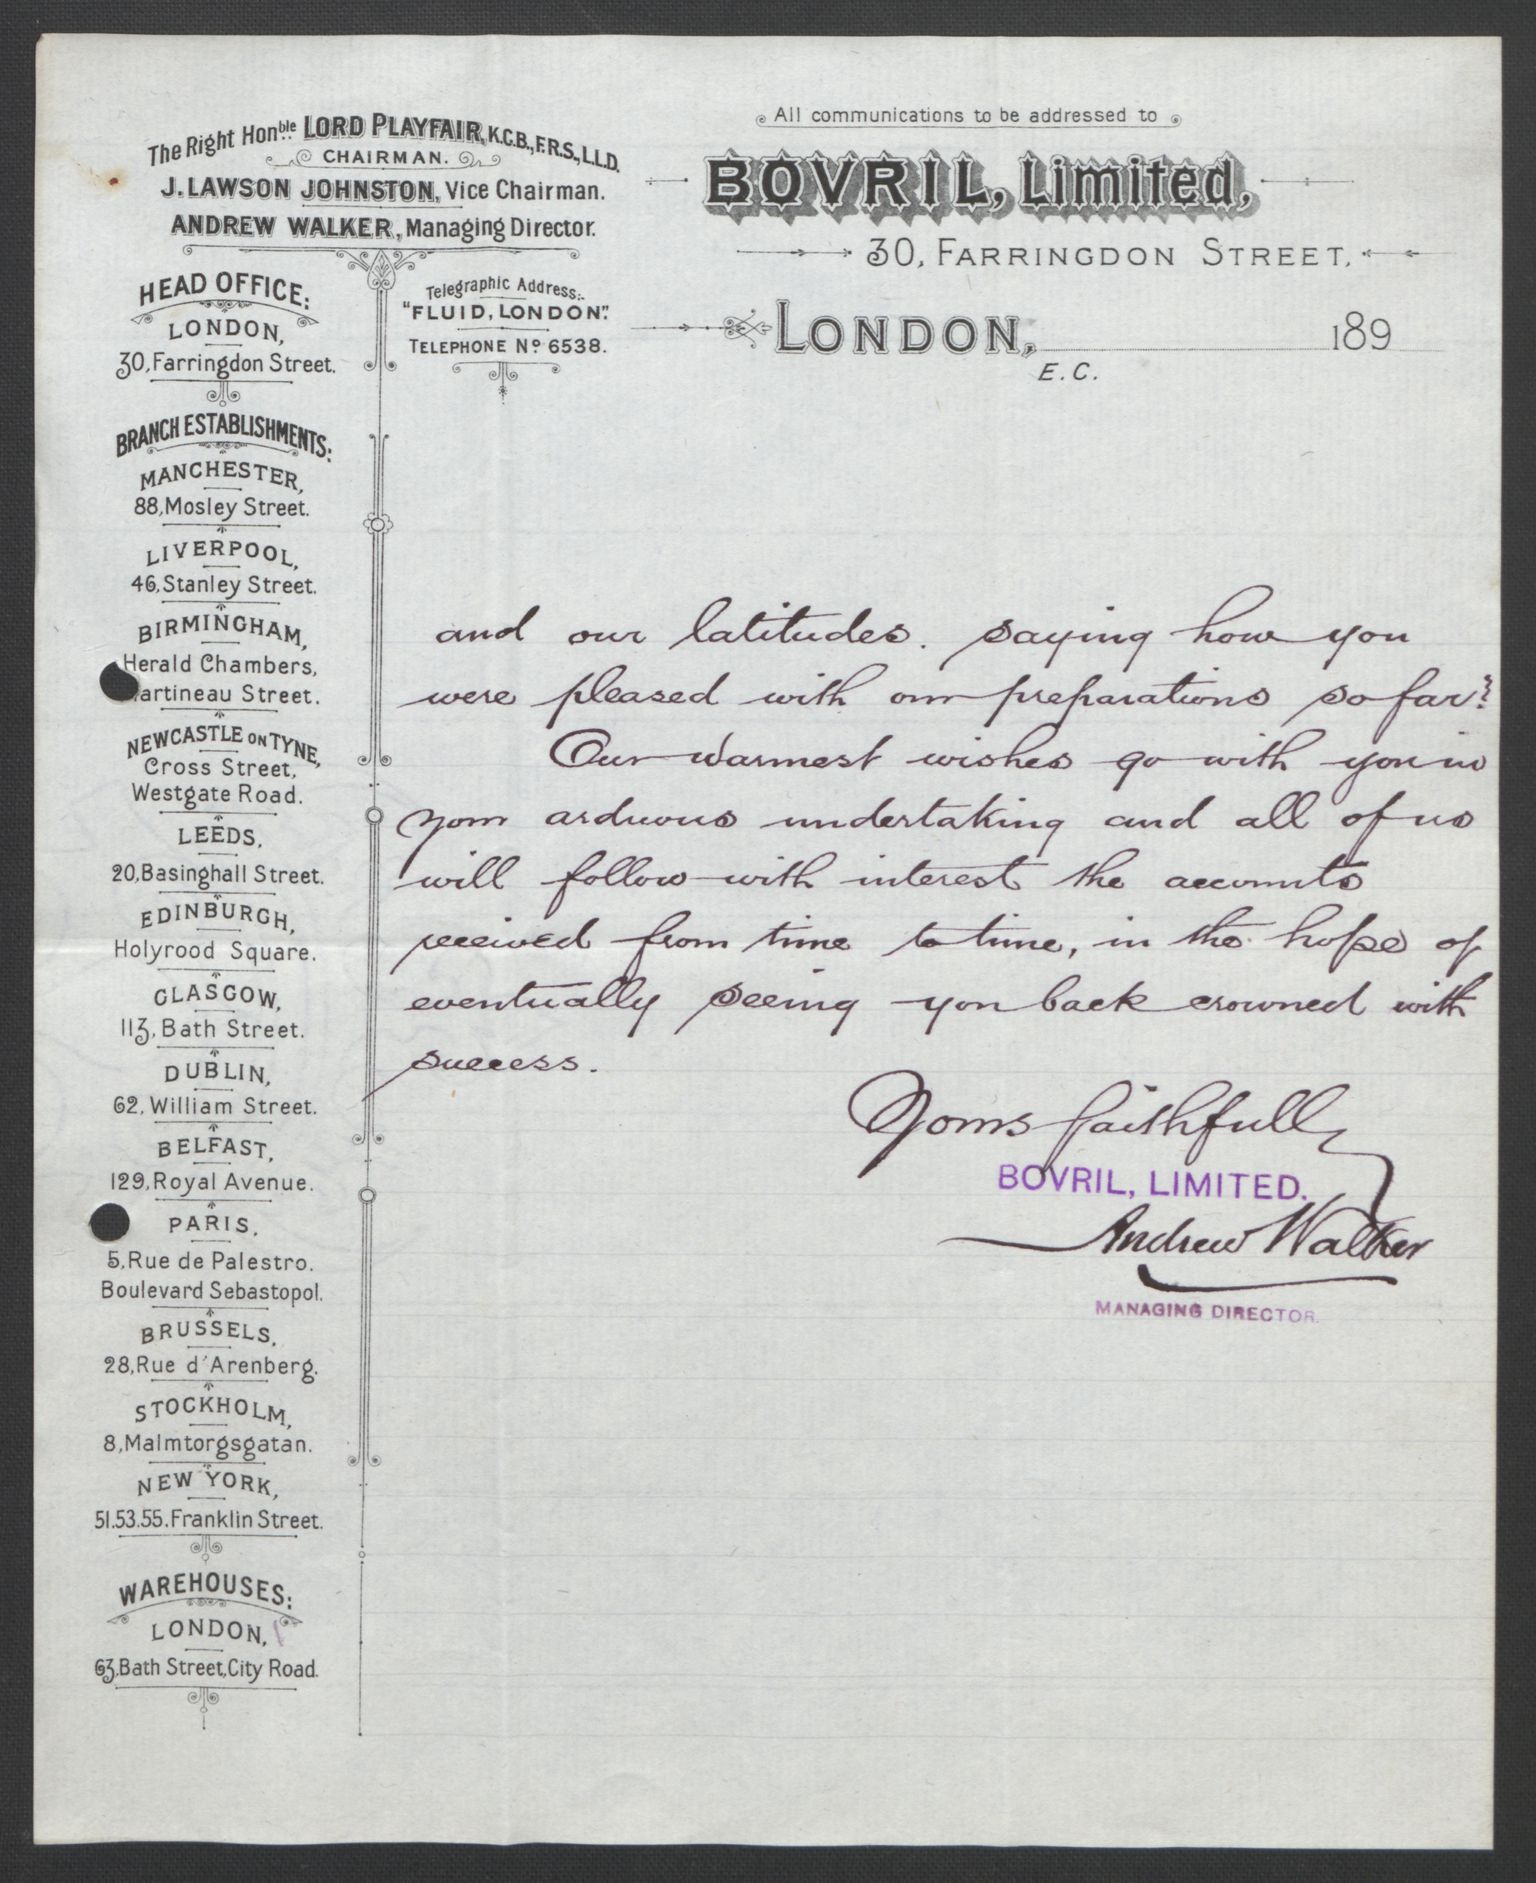 The Right Honble LORD PLAYFAIR, K.C.B., F.R.S., L.L.D.
CHAIRMAN.
J. LAWSON JOHNSTON, Vice Chairman.
ANDREW WALKER, Managing Director.
All communications to be addressed to
BOVRIL, Limited,
30, FARRINGDON STREET.
LONDON, 189
E.C.
Telegraphic Address:-
"FLUID, LONDON".
TELEPHONE No 6538.
HEAD OFFICE:
LONDON,
30, Farringdon Street.
BRANCH ESTABLISHMENTS:
MANCHESTER,
88, Mosley Street.
LIVERPOOL,
46, Stanley Street.
BIRMINGHAM,
Herald Chambers,
artineau Street.
NEWCASTLE ON TYNE,
Cross Street,
Westgate Road.
LEEDS,
20, Basinghall Street.
EDINBURGH,
Holyrood Square.
GLASGOW,
113, Bath Street.
DUBLIN,
62, William Street.
BELFAST,
129, Royal Avenue.
PARIS,
5, Rue de Palestro.
Boulevard Sebastopol.
BRUSSELS,
28, Rue d'Arenberg.
STOCKHOLM,
8, Malmtorgsgatan.
NEW YORK,
51.53.55. Franklin Street.
WAREHOUSES:
LONDON,
63, Bath Street, City Road.
and our latitudes. saying how you
were pleased with our preparations so far?
Our warmest wishes go with you in
your arduous undertaking and all of us
will follow with interest the accounts
received from time to time, in the hope of
eventually seeing you back crowned with
success.
Yours faithfully
BOVRIL, LIMITED.
Andrew Walker
MANAGING DIRECTOR.